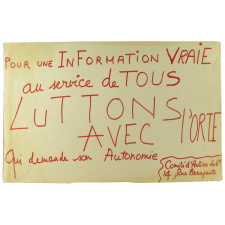 POUR UNE INFORMATION VRAIE
au service de TOUS
LUTTONS
AVEC l'ORTF
qui demande son Autonomie
Comité d'Action du 6e
14, Rue Bonaparte